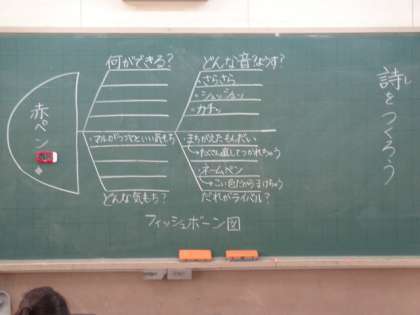 詩しをつくろう
赤ペン
何ができる?
どんな音?ようす?
・さらさら
・シュッシュッ
・カチッ
・マルがつくといい気もち
・まちがえたもんだい
たくさん直してつかれちゃう
・ネームペン
こい色だからまけちゃう
どんな気もち?
だれがライバル?
フィッシュボーン図